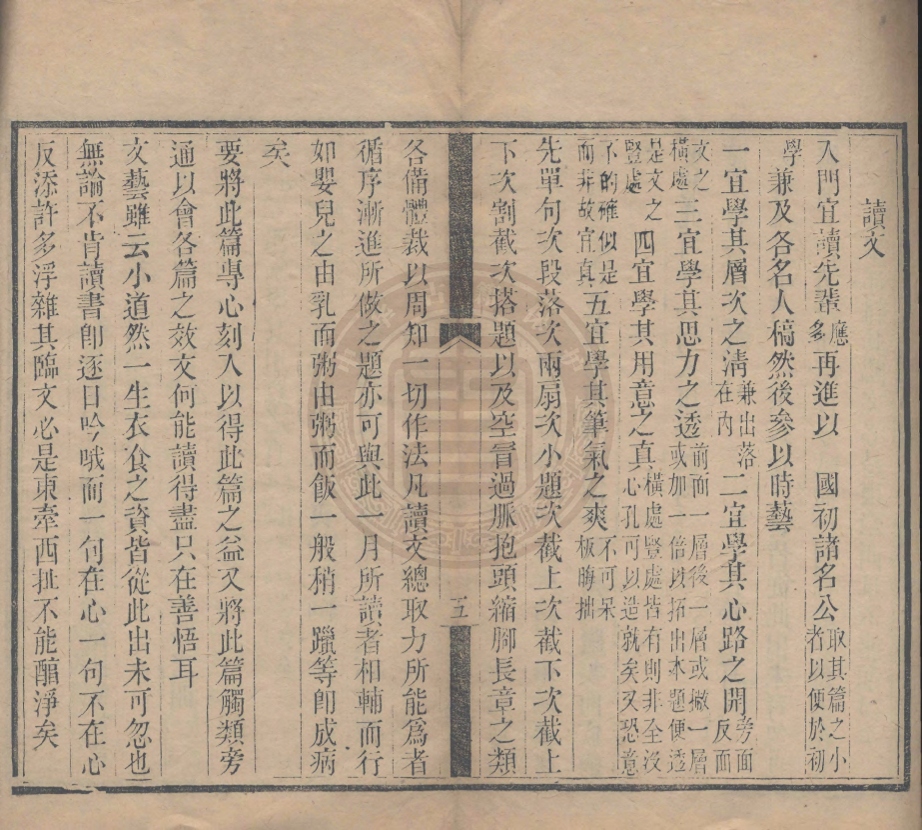 讀文
入門宜讀先輩應多再進以　國初諸名公取其篇之小者以便於初
學兼及各名人稿然後參以時藝
一宜學其層次之清兼出落在內二宜學其心路之開旁面反面
文之橫處三宜學其思力之透前面一層後一層或撇一層或加一倍以拓出本題便透
是文之豎處四宜學其用意之真橫處豎處皆有則非全沒心孔可以造就矣又恐意
不的確似是而非故宜真五宜學其筆氣之爽不可呆板晦拙
先單句次段落次兩扇次小題次截上次截下次截上
下次割截次搭題以及空冒過脈抱頭縮脚長章之類
五
各備體裁以周知一切作法凡讀文總取力所能爲者
循序漸進所做之題亦可與此一月所讀者相輔而行
如嬰兒之由乳而粥由粥而飯一般稍一躐等卽成病
矣
要將此篇專心刻入以得此篇之益又將此篇觸類旁
通以會各篇之效文何能讀得盡只在善悟耳
文藝雖云小道然一生衣食之資皆從此出未可忽也
無論不肯讀書卽逐日吟哦而一句在心一句不在心
反添許多浮雜其臨文必是東牽西扯不能醕淨矣